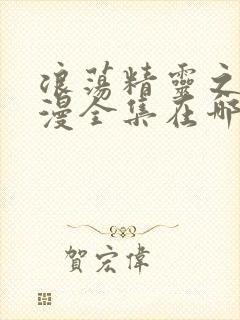 浪蕩精靈之
漫全集在哪
賀宏偉